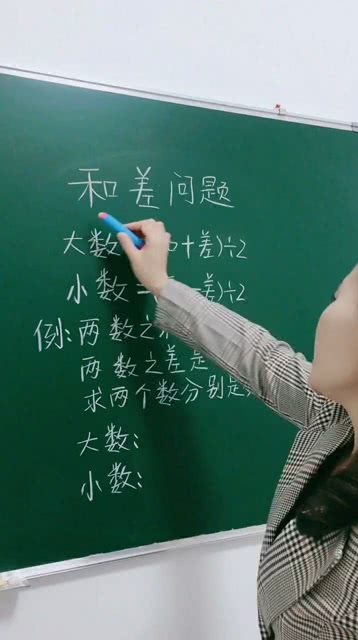 和差问题
大数 + 差)÷2
小数 = 差)÷2
例:两数之
两数之差是
求两个数分别是
大数:
小数: